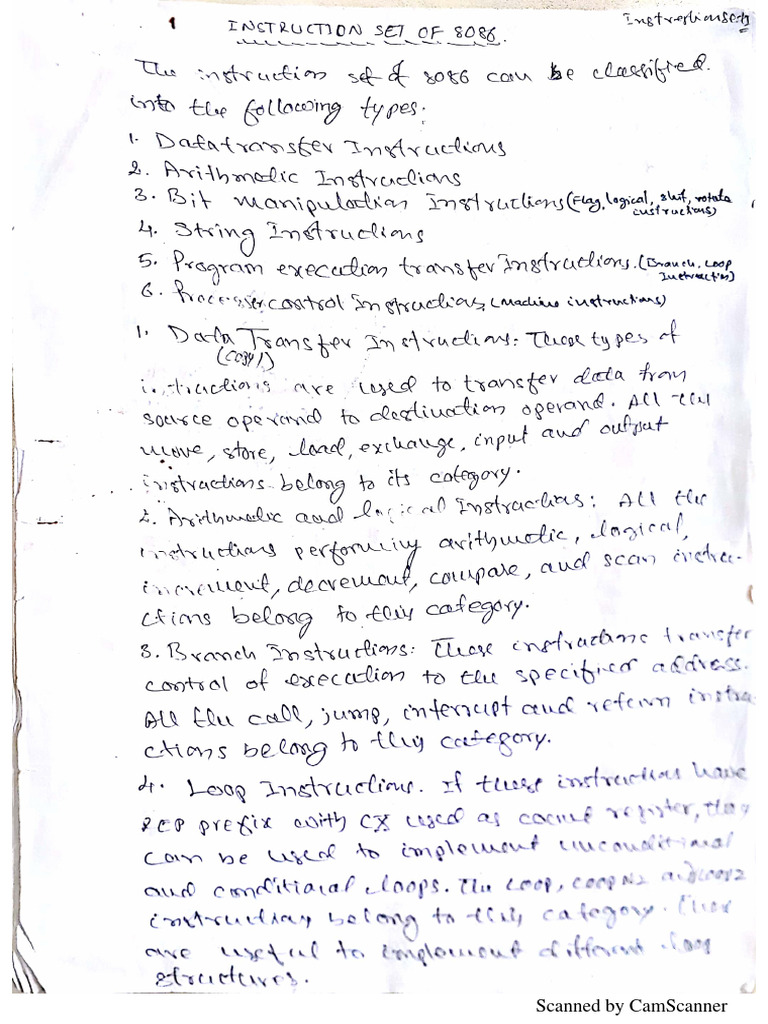 1 INSTRUCTION SET OF 8086. Instructionset
The instruction set of 8086 can be classified.
into the following types.
1. Data transfer Instructions
2. Arithmetic Instructions
3. Bit manipulation Instructions (Flag, logical, shift, rotate
instructions)
4. String Instructions
5. Program execution transfer Instructions. (Branch, Loop
Instruction)
6. Processer control Instructions (Machine instructions)
1. Data Transfer Instructions: These types of
(copy)
instructions are used to transfer data from
source operand to destination operand. All the
move, store, load, exchange, input and output
instructions belong to its category.
2. Arithmetic and logical Instructions: All the
instructions performing arithmetic, logical,
increment, decrement, compare, and scan instru-
ctions belong to this category.
3. Branch Instructions: These instructions transfer
control of execution to the specified address.
All the call, jump, interrupt and return instru
ctions belong to this category.
4. Loop Instructions. If these instructions have
REP prefix with CX used as count register, they
can be used to implement unconditional
and conditional loops. The Loop, LOOPNZ and LOOPZ
instructions belong to this category. These
are useful to implement different loop
structures.
Scanned by CamScanner